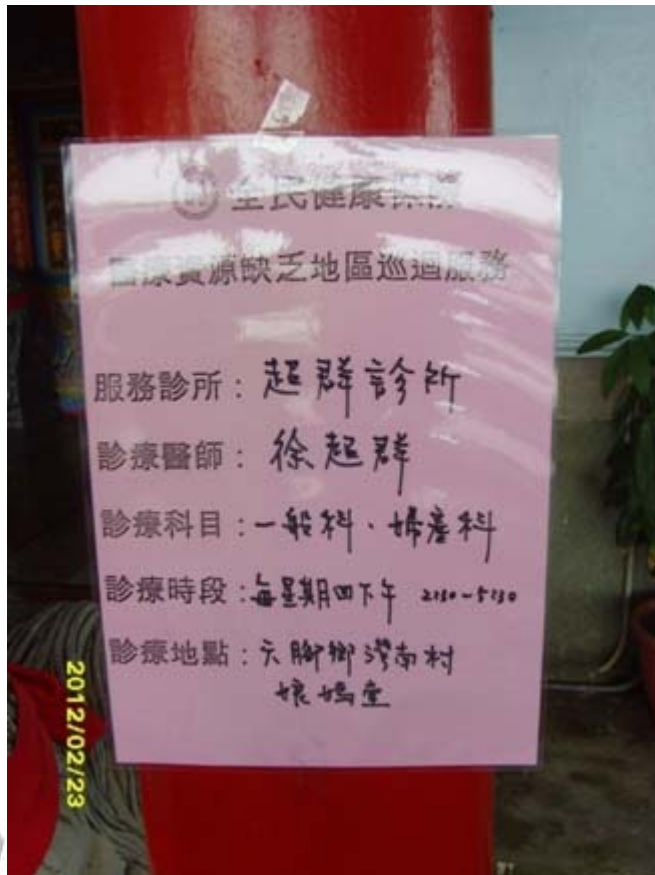 全民健康保險
醫療資源缺乏地區巡迴服務
服務診所：超群診所
診療醫師：徐超群
診療科目：一般科、婦產科
診療時段：每星期四下午 2:30-5:30
診療地點：六腳鄉灣南村
娘媽堂
2012/02/23